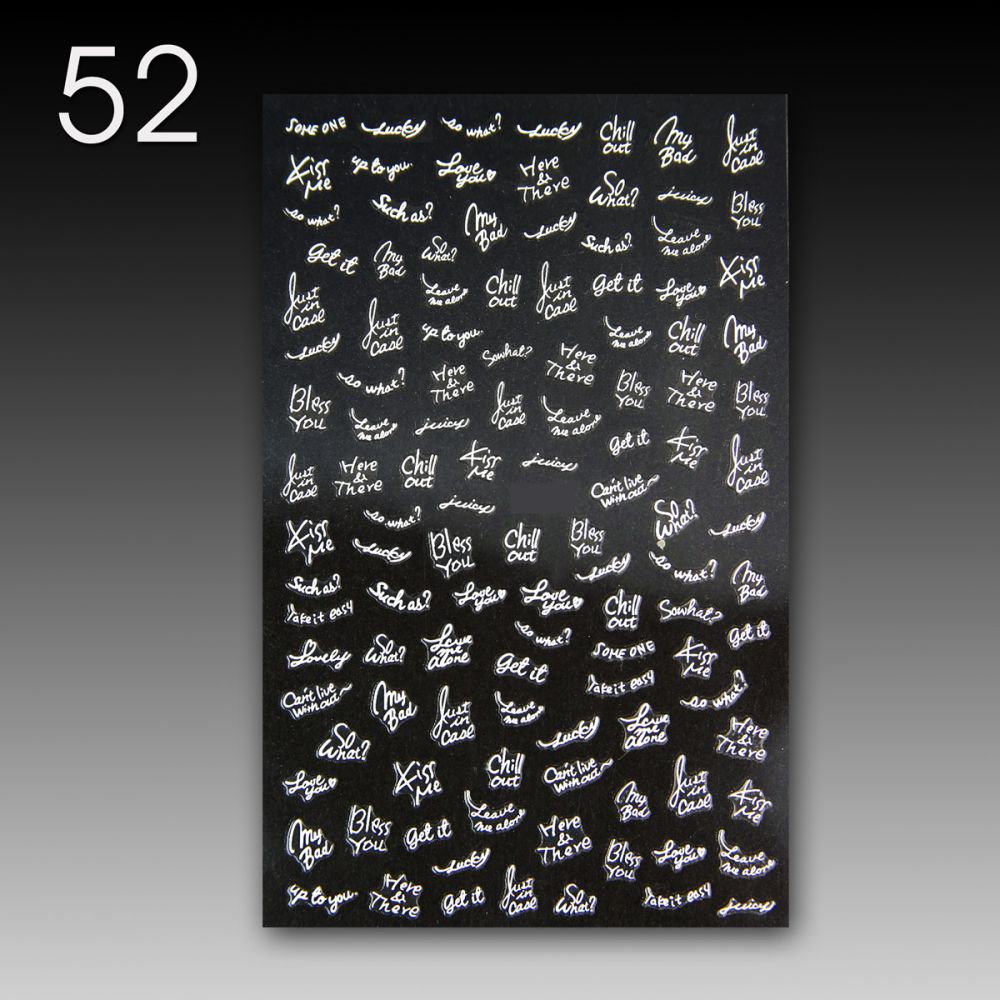 52
SOME ONE Lucky so what? Lucky Chill out My Bad Just in Case
Kiss Me up to you. Love you Here & There So What? juicy Bless You
so what? Such as? My Bad Lucky Such as? Leave me alone
Get it My Bad So What? Leave me alone Chill out Just in Case Get it Love you Kiss Me
Just in Case Just in Case up to you. Leave me alone Chill out My Bad
Lucky so what? Here & There So what? Here & There Bless You Here & There Bless You
Bless You Leave me alone juicy Just in Case Leave me alone Get it Kiss Me Just in Case
Just in Case Here & There Chill out Kiss Me juicy Can't live without
so what? juicy So What? Lucky
Kiss Me Lucky Bless You Chill out Bless You Lucky so what? My Bad
Such as? Such as? Love you Love you Chill out So what?
Take it easy so what? SOME ONE Kiss Me Get it
Lovely So What? Leave me alone Get it Take it easy so what?
Can't live without My Bad Just in Case Leave me alone Lucky Leave me alone Here & There
So What? Kiss Me Chill out Can't live without Just in Case
Love you My Bad Kiss Me
My Bad Bless You Get it Leave me alone Here & There Bless You Love you Leave me alone
Lucky
up to you. Here & There Get it Just in Case So What? Take it easy juicy